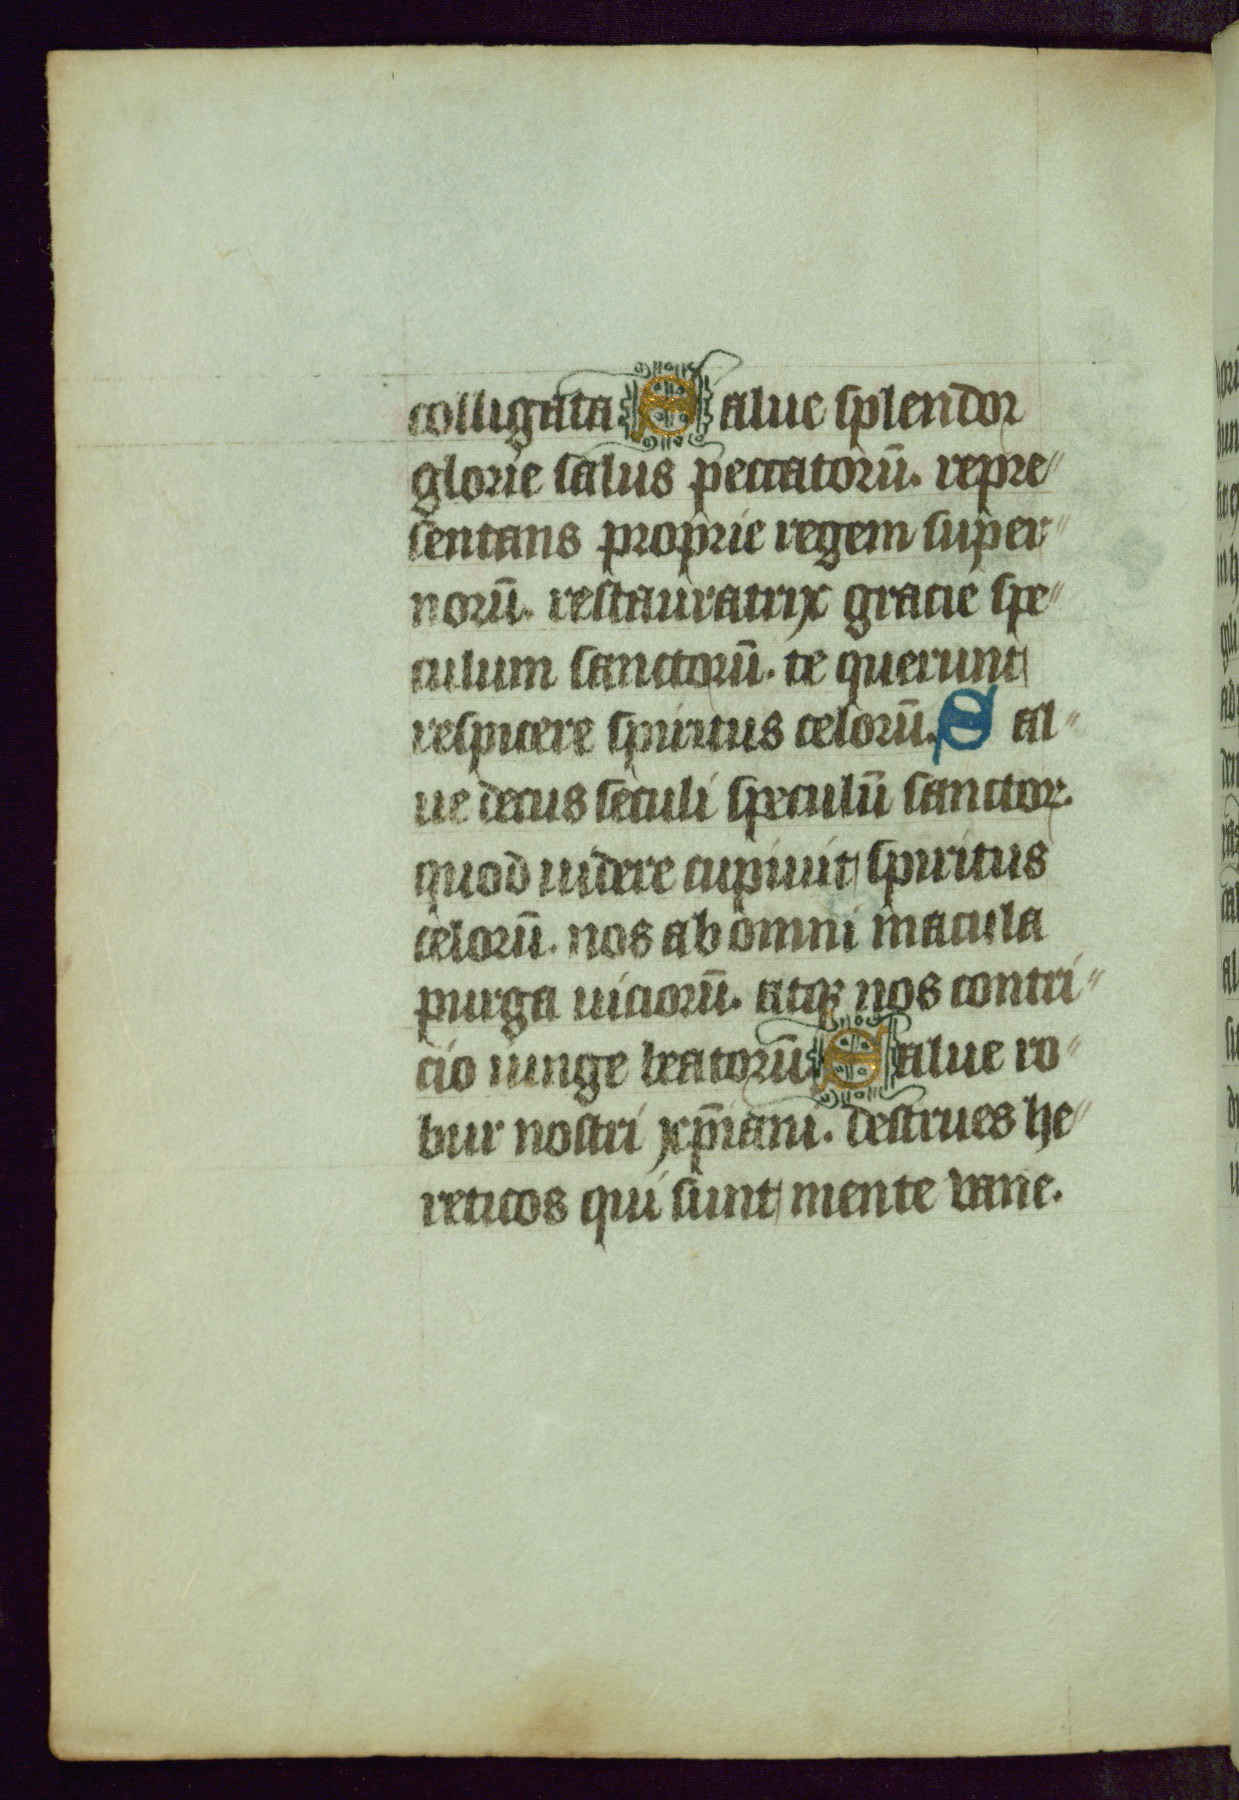 colligata Salue splendor
glorie salus peccatorū. repre〃
sentans proprie regem super〃
norū. restauratrix gracie spe〃
culum sanctorū. te querunt
respicere spiritus celorū. Sal〃
ue decus seculi speculū sanctoꝝ.
quod uidere cupiuit spiritus
celorū. nos ab omni macula
purga uiciorū. atqꝫ nos contri〃
cio iunge beatorū Salue ro〃
bur nostri xp̄iani. destrues he〃
reticos qui sunt mente vane.